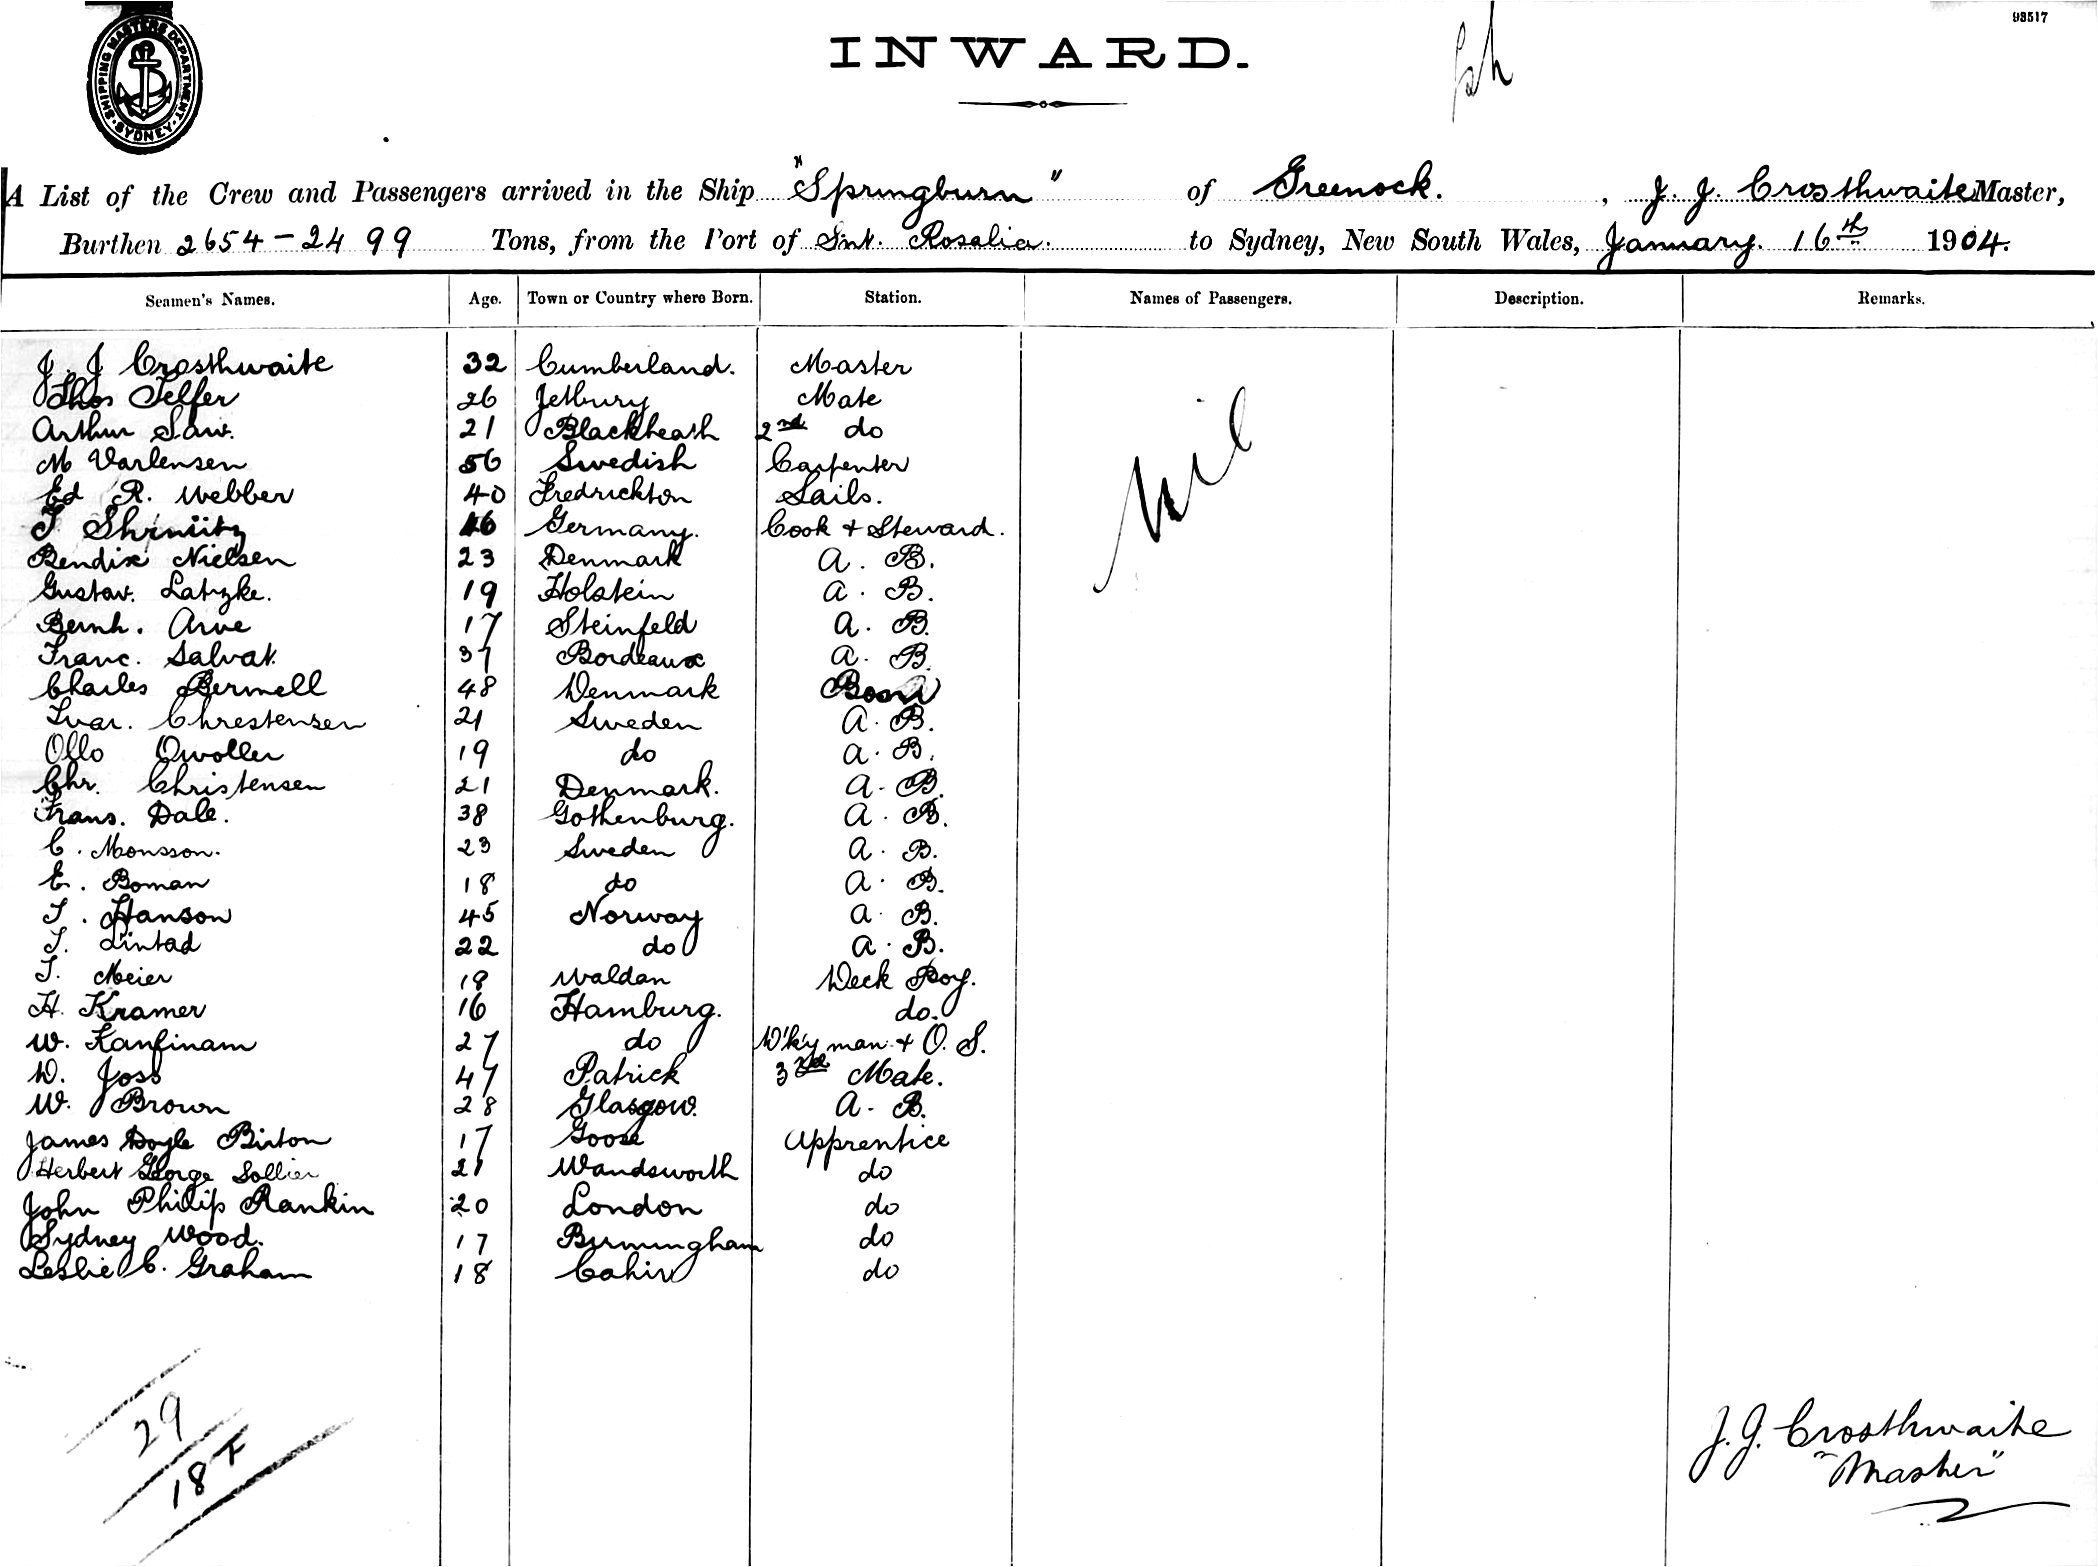 SHIPPING MASTERS DEPARTMENT. SYDNEY.
93517
INWARD.
A List of the Crew and Passengers arrived in the Ship "Springburn" of Greenock. , J. J. Crosthwaite Master,
Burthen 2654-2499 Tons, from the Port of Snt. Rosalia. to Sydney, New South Wales, January. 16th 1904.
Seamen's Names. Age. Town or Country where Born. Station. Names of Passengers. Description. Remarks.
J. J Crosthwaite 32 Cumberland. Master
Thos Telfer 26 Jetbury Mate
Arthur Saw. 21 Blackheath 2nd do
M Varlensen 56 Swedish Carpenter
Ed R. Webber 40 Fredrickton Sails.
Nil
Germany. Cook + Steward.
Bendix Nielsen 23 Denmark A. B.
Gustav. Latzke. 19 Holstein A. B.
Bernh. Arve 17 Steinfeld A. B.
Franc. Salvat. 37 Bordeaux A. B.
Charles Bermell 48 Denmark
Ivar. Chrestensen 21 Sweden A. B.
Ollo Qwoller 19 do A. B.
Chr. Christensen 21 Denmark. A. B.
Frans. Dale. 38 Gothenburg. A. B.
C. Monsson. 23 Sweden A. B.
E. Boman 18 do A. B.
T. Hanson 45 Norway A. B.
T. Lintad 22 do A. B.
T. Meier 18 Waldan Deck Boy.
H. Kramer 16 Hamburg. do.
W. Kanfinam 27 do D'ky man + O. S.
D. Joss 47 Patrick 3rd Mate.
W. Brown 28 Glasgow. A. B.
James Doyle Birton 17 Goose Apprentice
Herbert George Sollier 21 Wandsworth do
John Philip Rankin 20 London do
Sydney Wood. 17 Birmingham do
Leslie C. Graham 18 Cahir do
29
18 F
J. J. Crosthwaite
"Master"